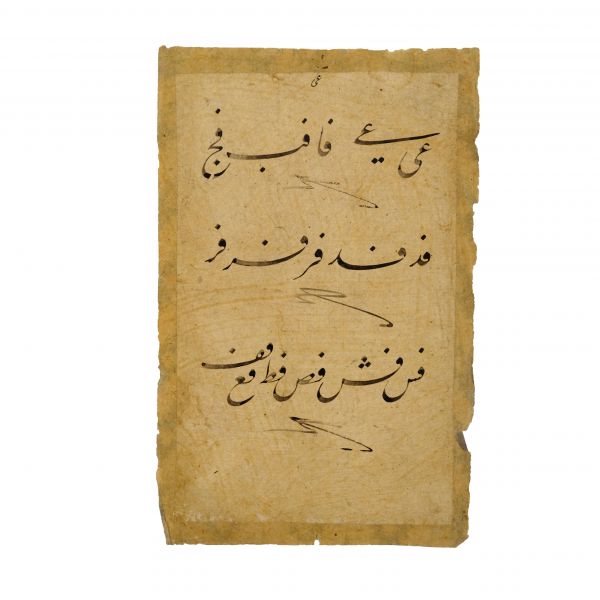 عى
عى عے فا فب فج
فد فد فر فر فر
فس فش فص فط فع فف